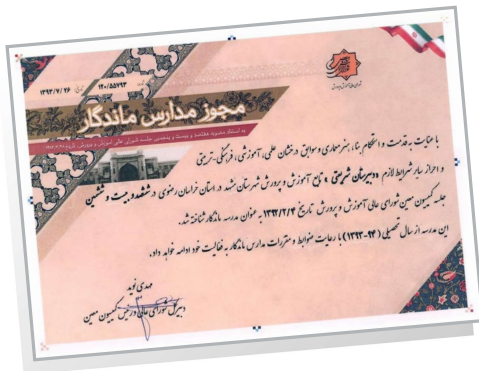 شورای عالی آموزش و پرورش
۱۳۹۳/۷/۲۶
۱۲۰/۵۵۷۹۳
مجوز مدارس ماندگار
به استناد مصوبه هفتصد و بیست و پنجمین جلسه شورای عالی آموزش و پرورش
با عنایت به قدمت و استحکام بنا، هنر معماری و سوابق درخشان علمی، آموزشی، فرهنگی-تربیتی
و احراز سایر شرایط لازم «دبیرستان شریعتی» تابع آموزش و پرورش شهرستان مشهد در استان خراسان رضوی در ششصد و بیست و ششمین
جلسه کمیسیون معین شورای عالی آموزش و پرورش تاریخ ۱۳۹۳/۲/۴ به عنوان مدرسه ماندگار شناخته شد.
این مدرسه از سال تحصیلی (۹۴-۱۳۹۳) با رعایت ضوابط و مقررات مدارس ماندگار به فعالیت خود ادامه خواهد داد.
مهدی نوید
دبیرکل شورای عالی و رئیس کمیسیون معین